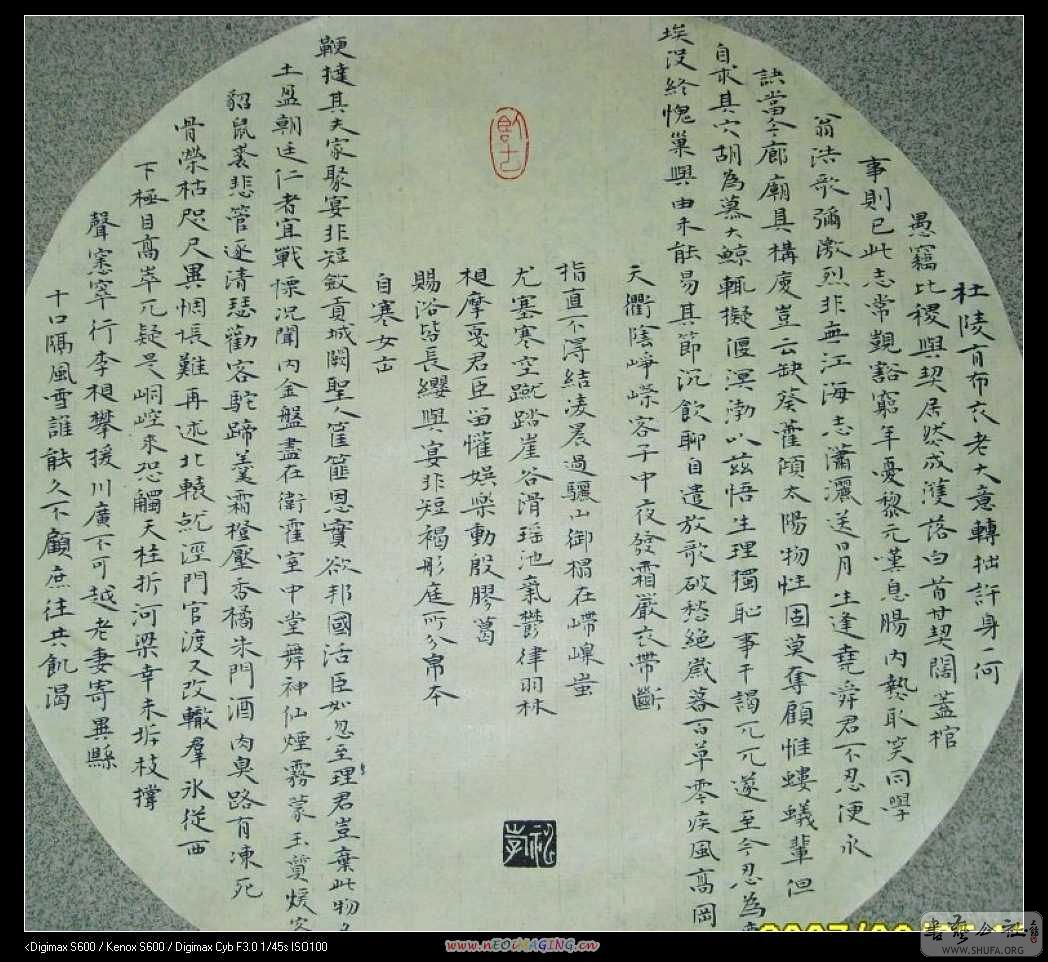 杜陵有布衣老大意轉拙許身一何
愚竊比稷與契居然成濩落白首甘契闊蓋棺
事則已此志常覬豁窮年憂黎元嘆息腸內熱取笑同學
翁浩歌彌激烈非無江海志瀟灑送日月生逢堯舜君不忍便永
訣當今廊廟具構廈豈云缺葵藿傾太陽物性固莫奪顧惟螻蟻輩但
自求其穴胡為慕大鯨輒擬偃溟渤以茲悟生理獨恥事干謁兀兀遂至今忍為
埃沒終愧巢與由未能易其節沉飲聊自遣放歌破愁絕歲暮百草零疾風高岡
天衢陰崢嶸客子中夜發霜嚴衣帶斷
指直不得結凌晨過驪山御榻在嵽嵲蚩
尤塞寒空蹴踏崖谷滑瑤池氣鬱律羽林
相摩戛君臣留懽娛樂動殷膠葛
賜浴皆長纓與宴非短褐彤庭所分帛本
自寒女出
鞭撻其夫家聚宴非短斂貢城闕聖人筐篚恩實欲邦國活臣如忽至理君豈棄此物
士盈朝廷仁者宜戰慄況聞內金盤盡在衛霍室中堂舞神仙煙霧蒙玉質煖客
貂鼠裘悲管逐清瑟勸客駝蹄羹霜橙壓香橘朱門酒肉臭路有凍死
骨榮枯咫尺異惆悵難再述北轅就涇門官渡又改轍羣氷從西
下極目高崒兀疑是峒崆來恐觸天柱折河梁幸未坼枝撐
聲窸窣行李相攀援川廣不可越老妻寄異縣
十口隔風雪誰能久不顧庶往共飢渴
<Digimax S600 / Kenox S600 / Digimax Cyb F3.0 1/45s ISO100
www.nEOiMAGiNG.cn
書藝公社
WWW.SHUFA.ORG